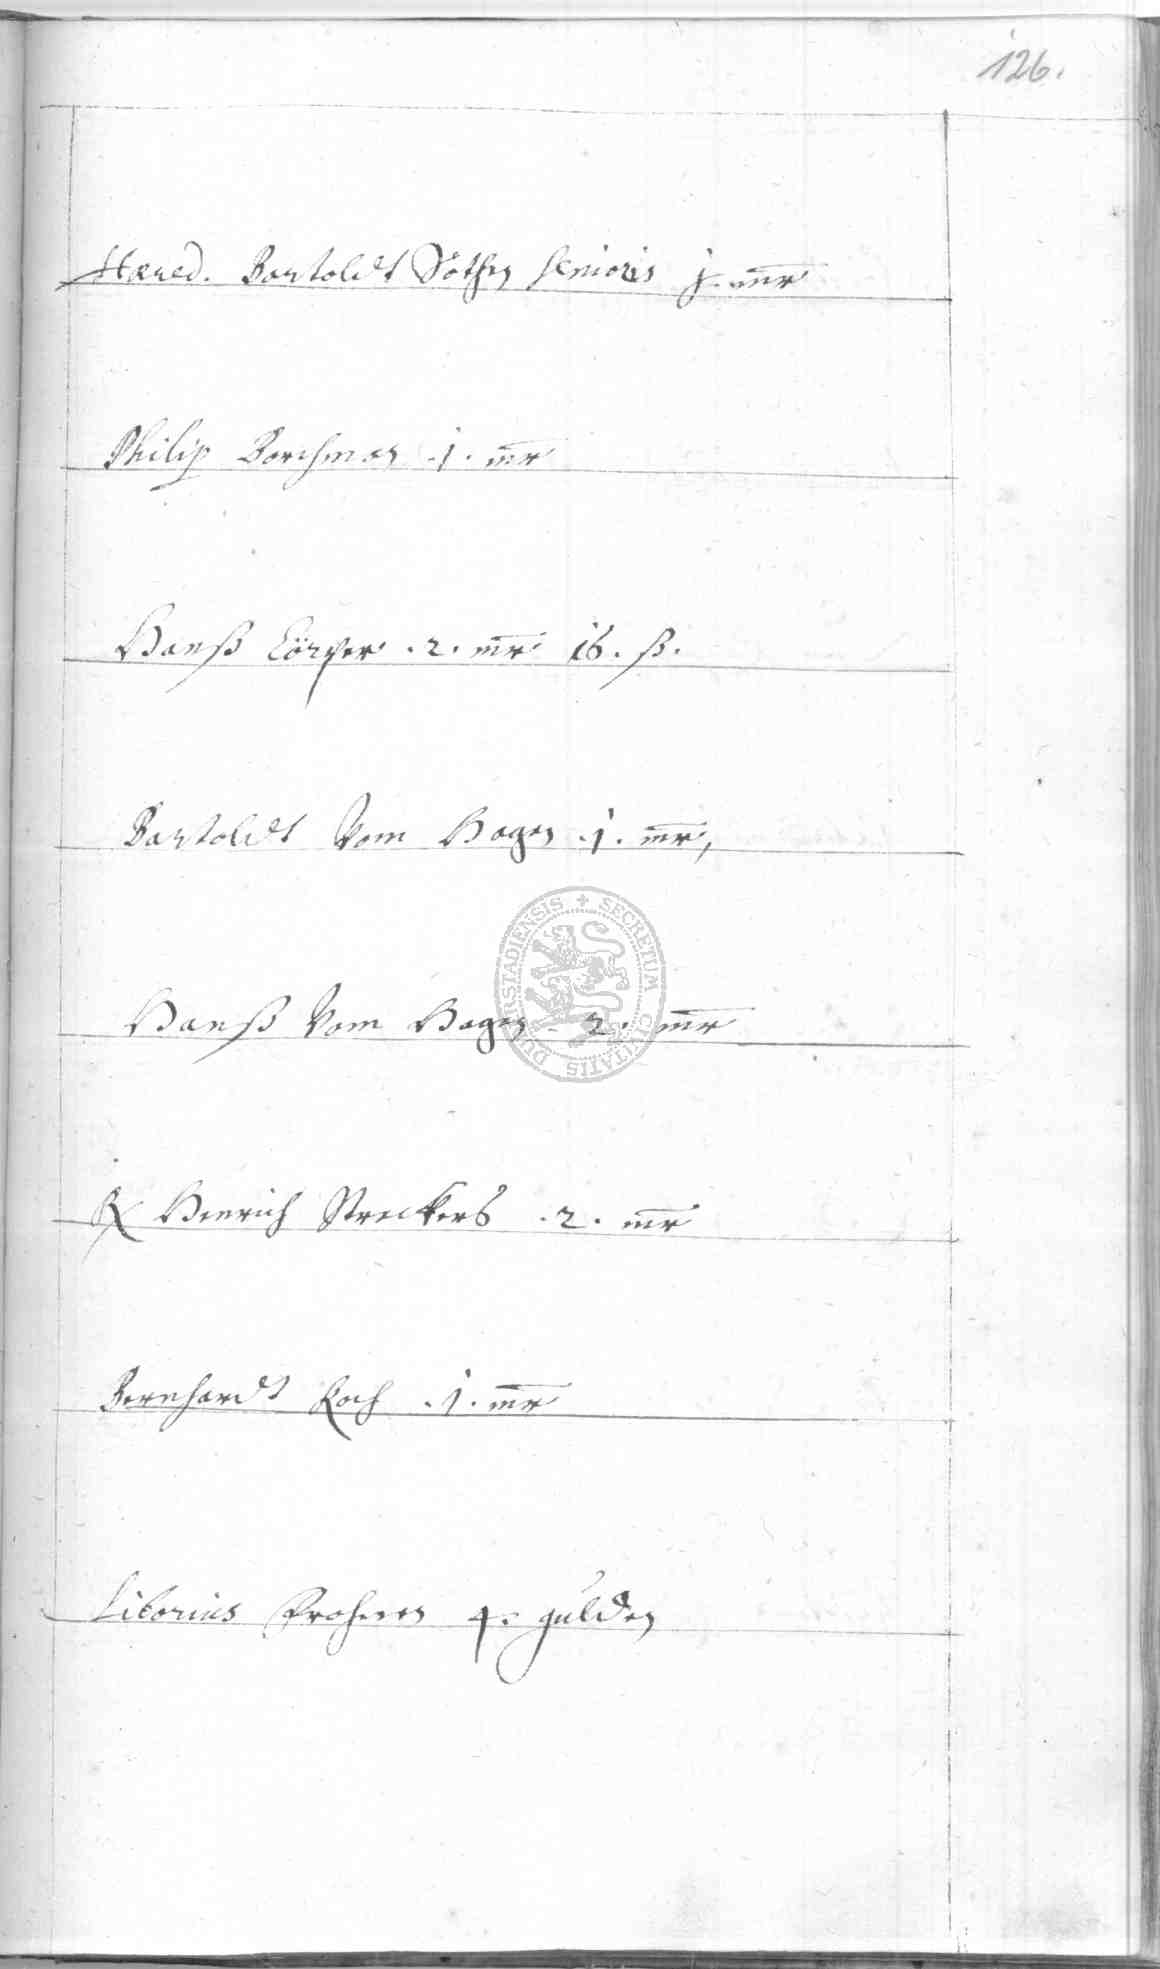 126.
Hæred. Bartoldt Söthen senioris j. mr
Philip Borchman .1. mr
Hanß Cörver .2. mr 16. ß.
Bartoldt Vom Hagen .1. mr,
Hanß Vom Hagen . 2. mr
Henrich Streckers .2. mr
Bernhardt Koch .1. mr
Liborius 4. gulden
SECRETUM CIVITATIS DUDERSTADIENSIS